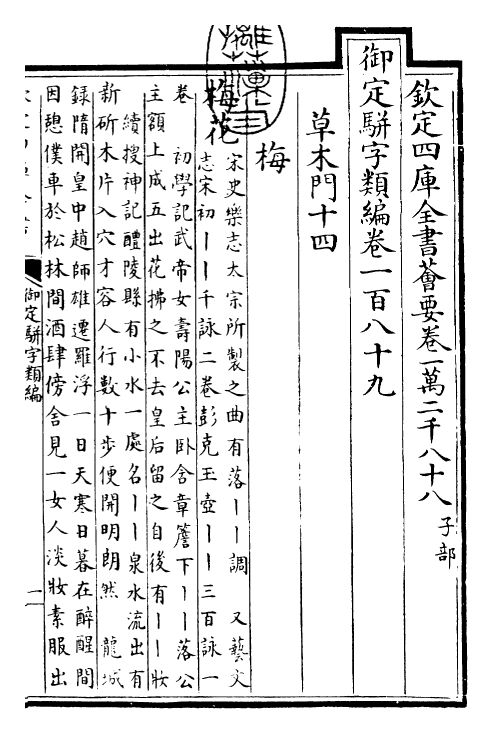 欽定四庫全書薈要卷一萬二千八十八 子部
御定駢字類編卷一百八十九
草木門十四
梅
梅花
宋史樂志太宗所製之曲有落丨丨調 又藝文
志宋初丨丨千詠二卷彭克玉壺丨丨三百詠一
卷 初學記武帝女壽陽公主臥含章簷下丨丨落公
主額上成五出花拂之不去皇后留之自後有丨丨妝
續搜神記醴陵縣有小水一處名丨丨泉水流出有
新斫木片入穴才容人行數十步便開明朗然 龍城
錄隋開皇中趙師雄遷羅浮一日天寒日暮在醉醒間
因憩僕車於松林間酒肆傍舍見一女人淡妝素服出
御定駢字類編
一